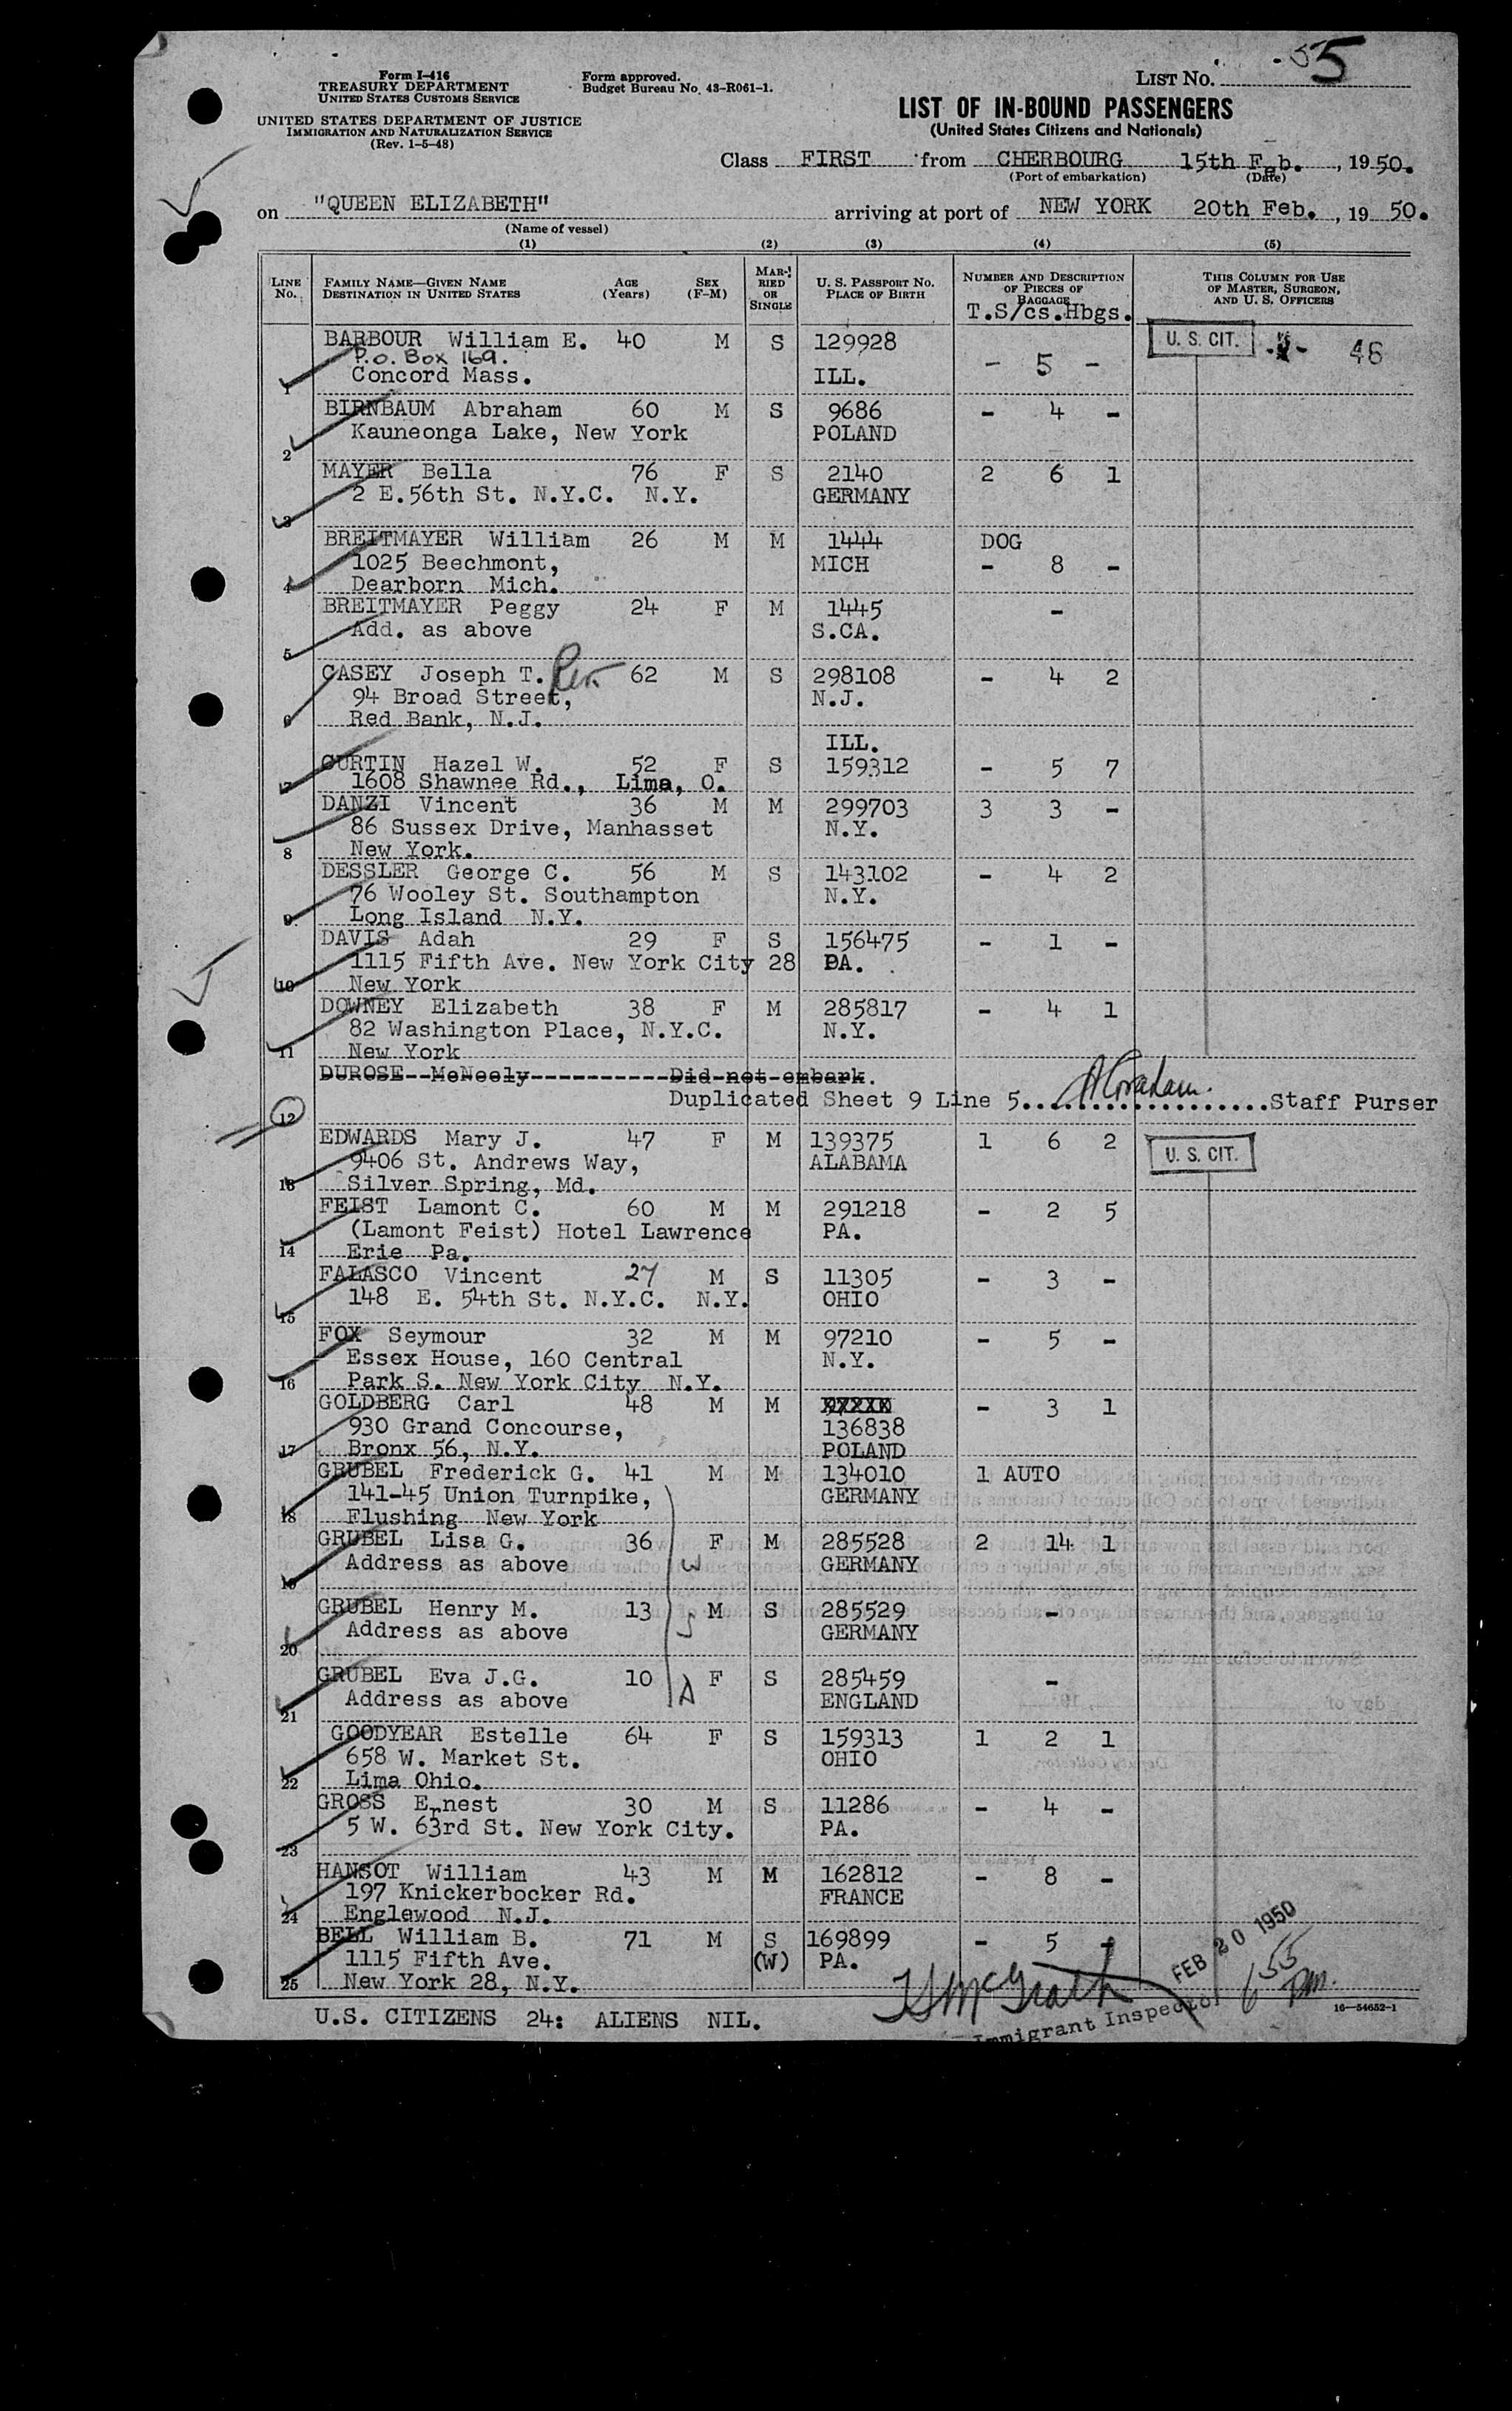 LIST No. 55
Form I-416
TREASURY DEPARTMENT
UNITED STATES CUSTOMS SERVICE
UNITED STATES DEPARTMENT OF JUSTICE
IMMIGRATION AND NATURALIZATION SERVICE
(Rev. 1-5-48)
Form approved.
Budget Bureau No. 43-R061-1.
LIST OF IN-BOUND PASSENGERS
(United States Citizens and Nationals)
Class FIRST from CHERBOURG 15th Feb., 1950.
(Port of embarkation) (Date)
on "QUEEN ELIZABETH" arriving at port of NEW YORK 20th Feb., 1950.
(Name of vessel)
(1) (2) (3) (4) (5)
LINE No. FAMILY NAME—GIVEN NAME DESTINATION IN UNITED STATES AGE (Years) SEX (F-M) MARRIED OR SINGLE U. S. PASSPORT NO. PLACE OF BIRTH NUMBER AND DESCRIPTION OF PIECES OF BAGGAGE THIS COLUMN FOR USE OF MASTER, SURGEON, AND U. S. OFFICERS
T.S/cs.Hbgs.
BARBOUR William E. 40 M S 129928 - 5 - U. S. CIT. 46
P.O. Box 169.
1 Concord Mass. ILL.
BIRNBAUM Abraham 60 M S 9686 - 4 -
Kauneonga Lake, New York POLAND
2
MAYER Bella 76 F S 2140 2 6 1
2 E.56th St. N.Y.C. N.Y. GERMANY
3
BREITMAYER William 26 M M 1444 DOG
1025 Beechmont, MICH - 8 -
4 Dearborn Mich.
BREITMAYER Peggy 24 F M 1445 -
Add. as above S.CA.
5
CASEY Joseph T. Rev. 62 M S 298108 - 4 2
94 Broad Street, N.J.
6 Red Bank, N.J.
ILL.
CURTIN Hazel W. 52 F S 159312 - 5 7
7 1608 Shawnee Rd., Lima, O.
DANZI Vincent 36 M M 299703 3 3 -
86 Sussex Drive, Manhasset N.Y.
8 New York.
DESSLER George C. 56 M S 143102 - 4 2
76 Wooley St. Southampton N.Y.
9 Long Island N.Y.
DAVIS Adah 29 F S 156475 - 1 -
1115 Fifth Ave. New York City 28 PA.
10 New York
DOWNEY Elizabeth 38 F M 285817 - 4 1
82 Washington Place, N.Y.C. N.Y.
11 New York
DUROSE--McNeely-----------Did-not-embark.
12 Duplicated Sheet 9 Line 5. AGraham. Staff Purser
EDWARDS Mary J. 47 F M 139375 1 6 2 U. S. CIT.
9406 St. Andrews Way, ALABAMA
13 Silver Spring, Md.
FEIST Lamont C. 60 M M 291218 - 2 5
(Lamont Feist) Hotel Lawrence PA.
14 Erie Pa.
FALASCO Vincent 27 M S 11305 - 3 -
148 E. 54th St. N.Y.C. N.Y. OHIO
15
FOX Seymour 32 M M 97210 - 5 -
Essex House, 160 Central N.Y.
16 Park S. New York City N.Y.
GOLDBERG Carl 48 M M - 3 1
930 Grand Concourse, 136838
17 Bronx 56, N.Y. POLAND
GRUBEL Frederick G. 41 M M 134010 1 AUTO
141-45 Union Turnpike, GERMANY
18 Flushing New York
GRUBEL Lisa G. 36 F M 285528 2 14 1
Address as above W GERMANY
19
GRUBEL Henry M. 13 M S 285529 -
Address as above S GERMANY
20
GRUBEL Eva J.G. 10 D F S 285459 -
Address as above ENGLAND
21
GOODYEAR Estelle 64 F S 159313 1 2 1
658 W. Market St. OHIO
22 Lima Ohio.
GROSS Ernest 30 M S 11286 - 4 -
5 W. 63rd St. New York City. PA.
23
HANSOT William 43 M M 162812 - 8 -
197 Knickerbocker Rd. FRANCE
24 Englewood N.J.
BELL William B. 71 M S 169899 - 5 -
1115 Fifth Ave. (W) PA.
25 New York 28, N.Y.
FEB 20 1950
655 pm.
U.S. CITIZENS 24: ALIENS NIL.
McGrath
Immigrant Inspector
16—54652-1